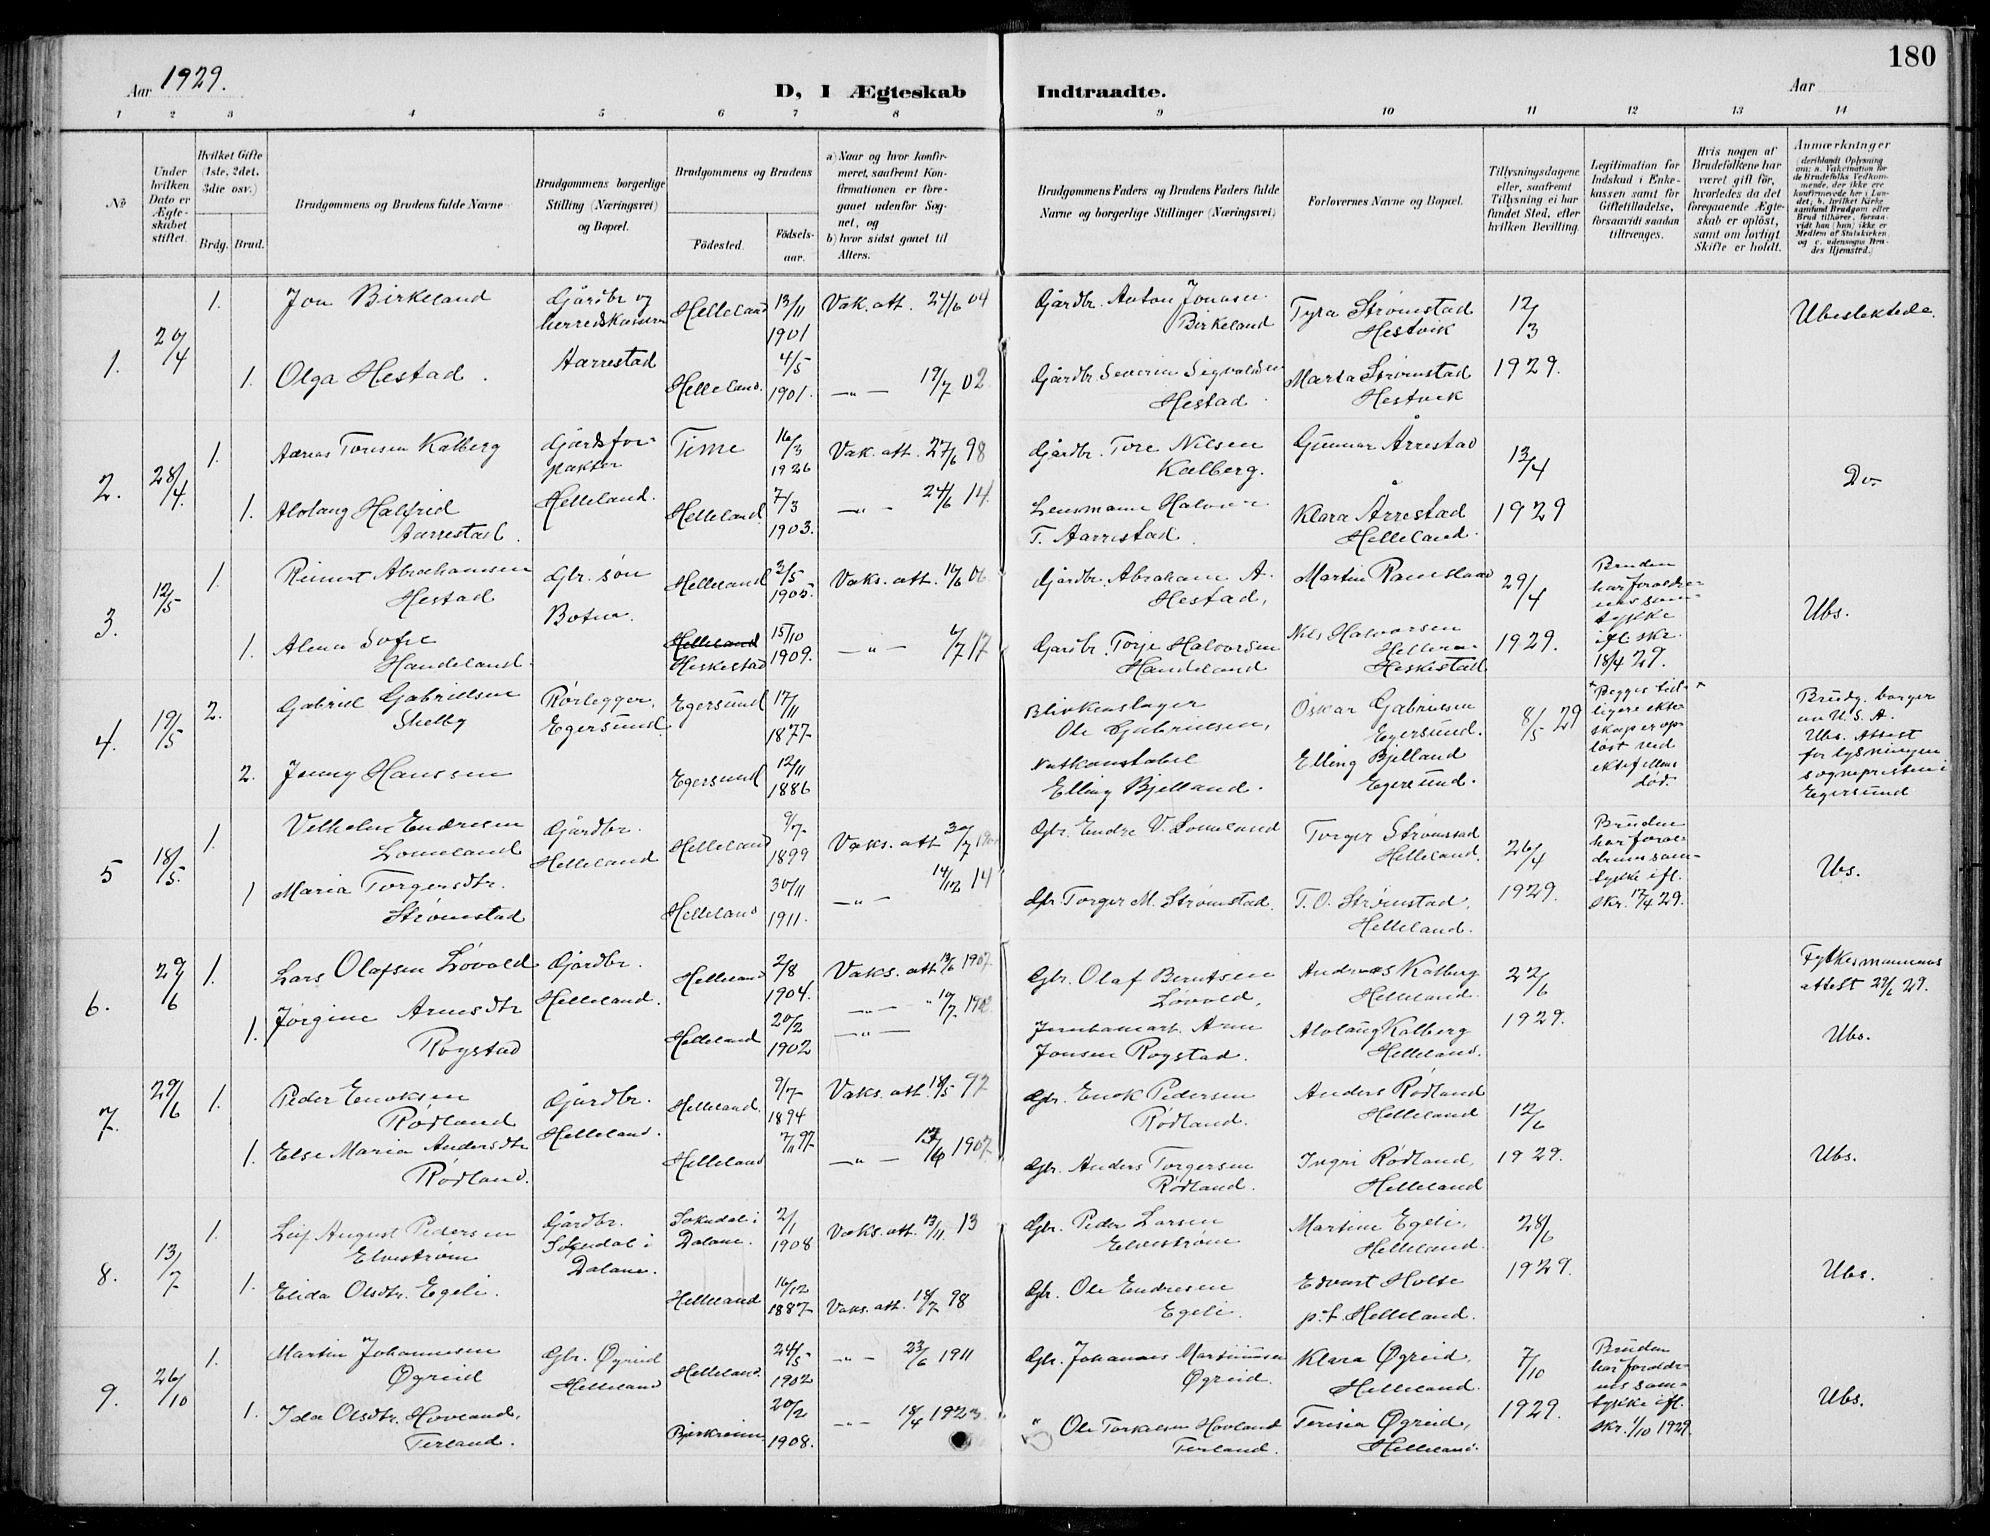 180
Aar 1929.
D, I Ægteskab Indtraadte.
Aar
1 2 3 4 5 6 7 8 9 10 11 12 13 14
No
Under hvilken Dato er Ægteskabet stiftet.
Hvilket Gifte (1ste, 2det, 3die osv.)
Brdg. Brud.
Brudgommens og Brudens fulde Navne
Brudgommens borgerlige Stilling (Næringsvei) og Bopæl.
Brudgommens og Brudens
Födested.
Födselsaar.
a) Naar og hvor konfirmeret, saafremt Konfirmationen er foregaaet udenfor Sognet, og
b) hvor sidst gaaet til Alters.
Brudgommens Faders og Brudens Faders fulde Navne og borgerlige Stillinger (Næringsvei)
Forlovernes Navne og Bopæl.
Tillysningsdagene eller, saafremt Tillysning ei har fundet Sted, efter hvilken Bevilling.
Legitimation for Indskud i Enkekassen samt for Giftetilladelse, forsaavidt saadan tiltrænges.
Hvis nogen af Brudefolkene har været gift för, hvorledes da det foregaaende Ægteskab er oplöst, samt om lovligt Skifte er holdt.
Anmærkninger
(deriblandt Oplysning om: a. Vakcination for de Brudefolks Vedkommende, der ikke ere konfirmerede her i Landet; b. hvilket Kirkesamfund Brudgom eller Brud tilhører, forsaavidt han (hun) ikke er Medlem af Statskirken, og c. udensogns Brudes Hjemsted.)
1. 20/4
1. Jon Birkeland Gårdbr. og herredskasserer Helleland 13/11 1901 Vak. att. 24/6 04 Gårdbr. Anton Jonasen Birkeland Tyra Strømstad Hestvik 12/3 Ubeslektede.
1. Olga Hestad. Aarrestad Helleland. 4/5 1901. —"— 19/7 02 Gårdbr. Severin Sigvaldsen Hestad. Marta Strømstad Hestvik 1929.
2. 28/4.
1. Aanas Toresen Kalberg Gårdsforpakter Time 16/3 1926 Vak. att. 27/6 98 Gårdbr. Tore Nilsen Kalberg. Gunnar Årrestad 13/4 Do
1. Alvlaug Halfrid Aarrestad. Helleland. Helleland 7/3 1903. —"— 24/6 14. Lensmann Halvor T. Aarrestad. Klara Årrestad Helleland. 1929
3. 12/5
1. Reinert Abrahamsen Hestad Gbr. søn Helleland 3/5 1905. Vaks. att. 16/6 06 Gårdbr. Abraham A. Hestad, Martin Ramsland 29/4 Bruden har foreldrenes samtykke ifl. skr. 18/4 29. Ubs.
1. Alena Sofie Handeland. Botne. Helleland Heskestad 15/10 1909. —"— 4/7 17 Gardbr. Torje Halvorsen Handeland Nils Halvorsen Helleren Heskestad 1929.
4. 19/5
2. Gabriel Gabrielsen Skelby Rørlegger, Egersund. Egersund 17/11 1877 Blikkenslager Ole Gabrielsen, Oskar Gabrielsen Egersund. 8/5 29 Begges tidligere ekteskap er opløst ved ektefellens død. Brudg. borger av U.S.A. Ubs. Attest for lysningen sognepresten i Egersund
2. Jenny Hanssen Egersund 12/11 1886 Natkonstabel Elling Bjelland. Elling Bjelland Egersund.
5 18/5.
1. Vilhelm Endresen Lomeland Gårdbr. Helleland Helleland 9/7 1899 Vaks. att 30/7 190 Gbr. Endre V. Lomeland Torger Strømstad Helleland. 26/4 Bruden har foreldrenes samtykke ifl. skr. 17/4 29. Ubs.
1 Maria Torgersdtr. Strømstad Helleland 30/11 1911. —"— 14/12 14 Gbr. Torger M. Strømstad. T. O. Strømstad, Helleland. 1929.
6. 29/6
1. Lars Olafsen Løvold Gårdbr. Helleland. Helleland 2/8 1904. Vaks. att 13/6 1907 Gbr. Olaf Berntsen Løvold, Andreas Kalberg Helleland. 22/6 Fylkesmannens attest 29/6 29.
1. Jørgine Arnesdtr Rogstad Helleland 20/2 1902 —"— 10/7 1902 Jernbanearb. Arne Jonsen Rogstad. Alvlaug Kalberg Helleland. 1929. Ubs.
7. 29/6
1. Peder Enoksen Rødland Gårdbr. Helleland. Helleland. 9/7 1894 Vaks. att. 18/5 97 Gbr. Enok Pedersen Rødland. Anders Rødland Helleland 12/6
1. Else Maria Andersdtr Rødland. Helleland 7/11 97 —"— 13/6 1907. Gbr. Anders Torgersen Rødland. Ingri Rødland, Helleland 1929. Ubs.
8. 13/7
1. Leif August Pedersen Elvestrøm Gårdbr. Sokndal i Dalane. Sokndal i Dalane. 2/1 1908 Vaks. att. 13/11 13 Gbr. Peder Larsen Elvestrøm Martin Egeli, Helleland. 28/6
1. Elida Olsdtr. Egeli. Helleland 16/12 1887 Vaks. att. 18/7 98 Gbr. Ole Endresen Egeli. Edvart Holte p.t. Helleland. 1929. Ubs.
9. 26/10
1. Martin Johannesen Øgreid Gbr. Øgreid Helleland Helleland. 24/5 1902 —"— 23/6 1911 Gbr. Johannes Martiniussen Øgreid. Klara Øgreid, Helleland. 7/10 Bruden har foreldrenes samtykke ifl. skr. 1/10 1929.
1. Ida Olsdtr. Hovland, Terland. Bjerkreim 20/2 1908. —"— 18/4 1923. " Ole Torkelsen Hovland Terland. Teresia Øgreid, Helleland. 1929. Ubs.